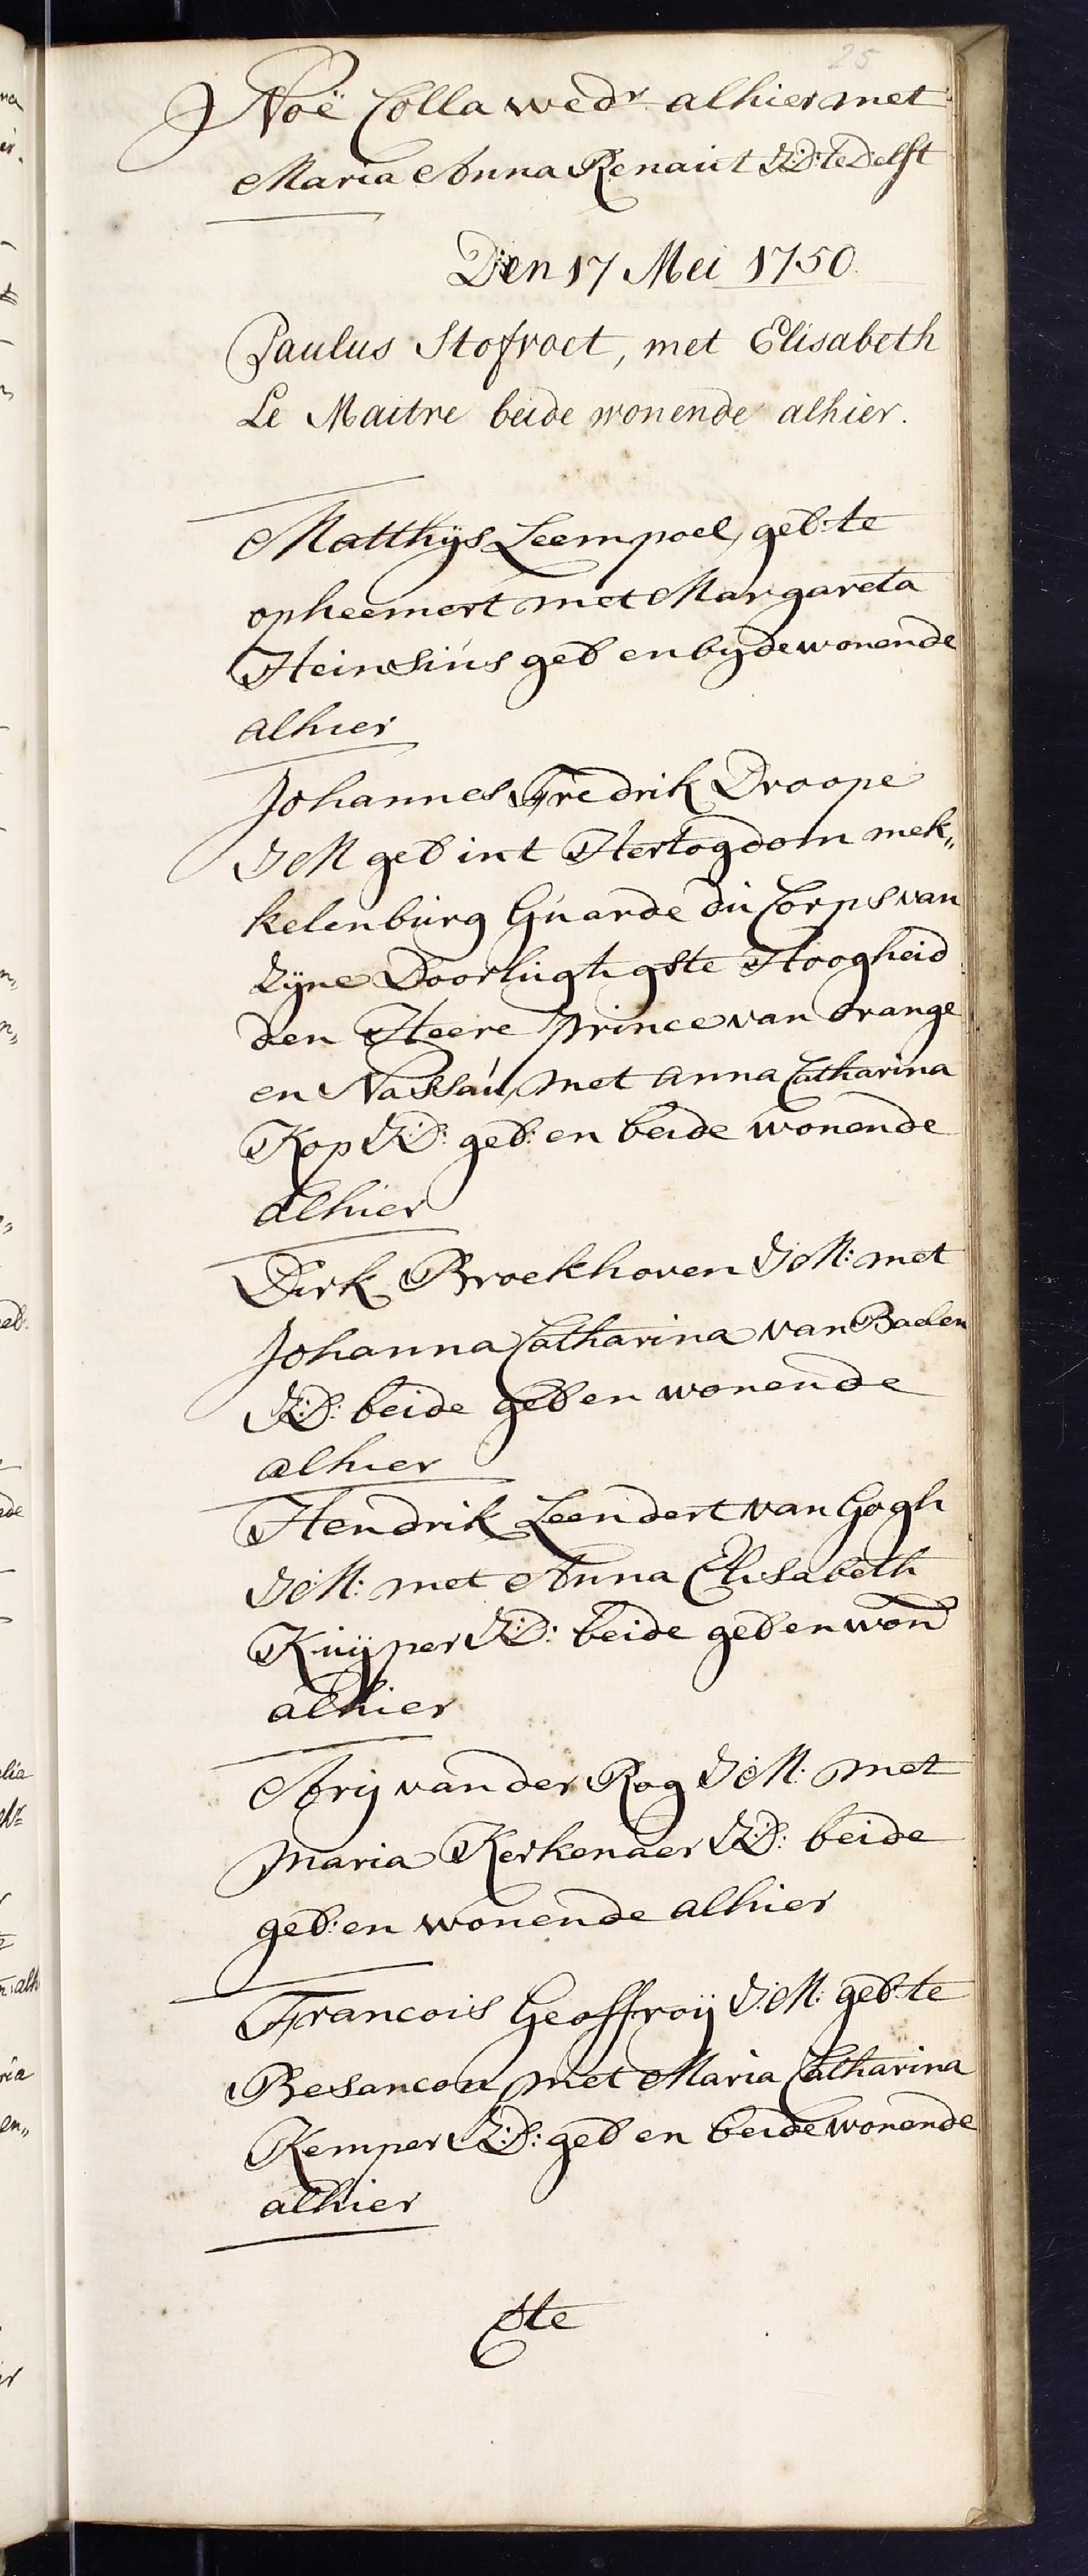 25
Noë Colla wedr alhier met
Maria Anna Renaut J:D: te Delft
Den 17 Mei 1750.
Paulus Stofvoet, met Elisabeth
Le Maitre beide wonende alhier.
Matthijs Leempoel, geb: te
opheemert met Margareta
Heinsius geb en byde wonende
alhier
Johannes Fredrik Droope
JM geb int Hertogdom mek„
kelenburg Guarde du Corps van
Zyne Doorlugtigste Hoogheid
den Heere Prince van orange
en Nassau, met anna Catharina
Kop J:D: geb: en beide wonende
alhier
Dirk Broekhoven J:M: met
Johanna Catharina van Baelen
J:D: beide geb en wonende
alhier
Hendrik Leendert van Gogh
J:M: met Anna Elisabeth
Kuijper J:D: beide geb en won
alhier
Arij van der Rog J:M: met
Maria Kerkenaer J:D: beide
geb: en wonende alhier
Francois Geoffroij J:M: geb: te
Besancon met Maria Catharina
Kemper J:D: geb en beide wonende
alhier